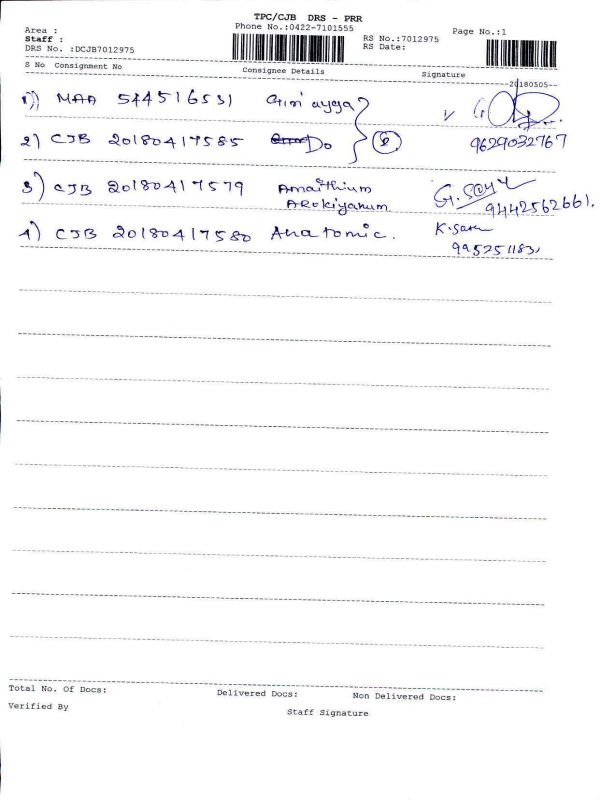 TPC/CJB DRS - PRR
Area :
Phone No.:0422-7101555
Page No.:1
Staff :
RS No.:7012975
DRS No. :DCJB7012975
RS Date:
S No Consignment No Consignee Details Signature
--20180505--
1) MAA 544516531
2) CJB 20180417585 Do 9629032767
3) CJB 20180417579 Amaithium
Arokiyanum 9442562661.
4) CJB 20180417580 Anatomic. K.Saru
995251183
Total No. Of Docs: Delivered Docs: Non Delivered Docs:
Verified By Staff Signature